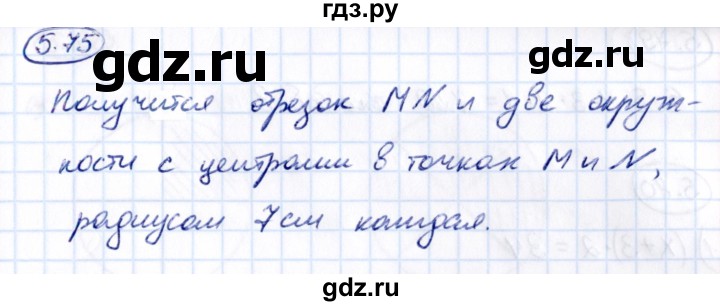 гдз.ру
5.75
gdz.ru gdz.ru
Получится отрезок MN и две окруж-
ности с центрами в точках M и N,
радиусом 7см каждая.
gdz.ru gdz.ru